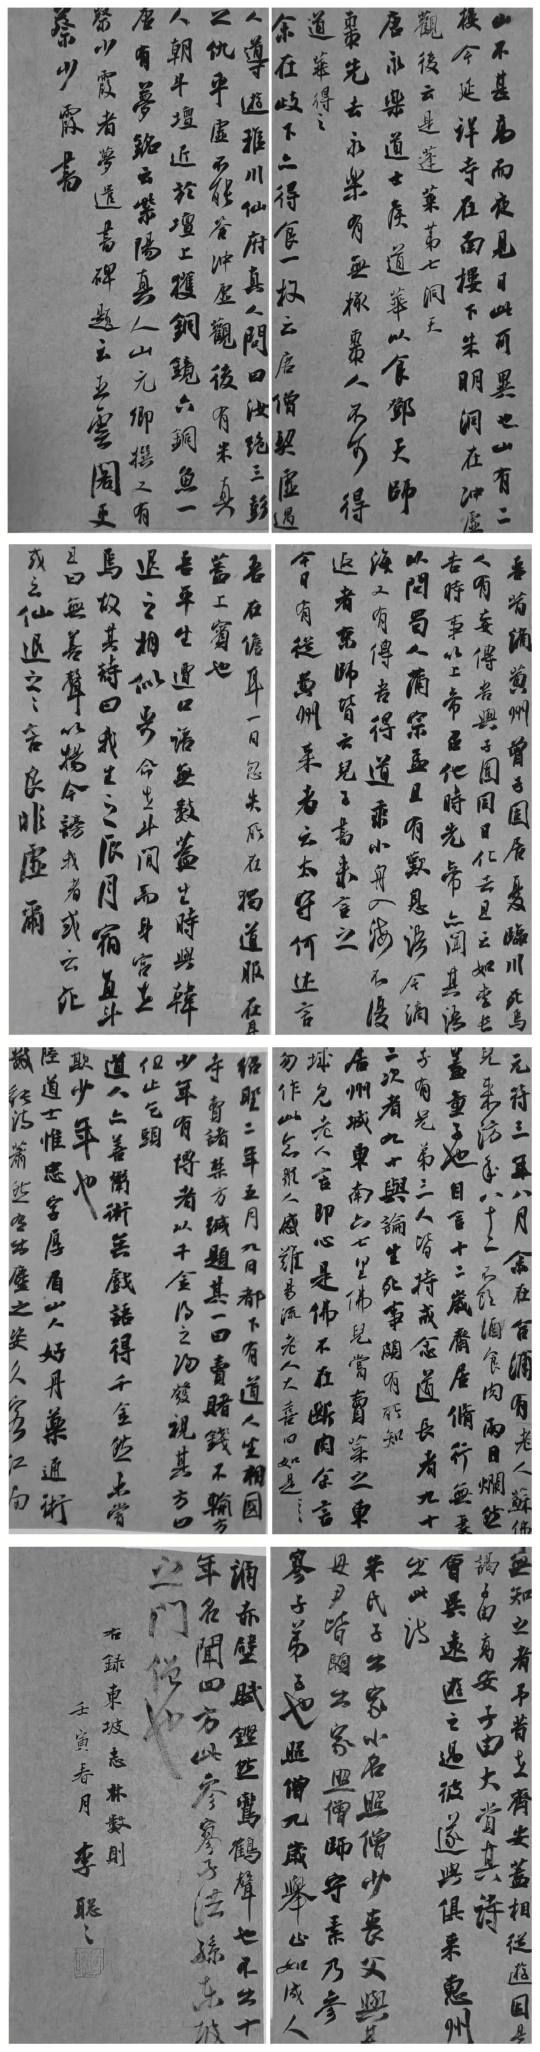 山不甚高而夜见日此可異也山有二
樓今延祥寺在南樓下朱明洞在冲虛
觀後云是蓬萊第七洞天
唐永樂道士侯道華以食鄧天師
棗先去永樂有無核棗人不可得
道華得之
余在岐下亦得食一枚云唐僧契虛遇
人導遊稚川仙府真人問曰汝絶三彭
之仇乎虛不能答冲虛觀後有米真
人朝斗壇近於壇上獲銅鏡六銅魚一
唐有夢銘云紫陽真人山元卿撰又有
蔡少霞者夢遣書碑題云五雲閣吏
蔡少霞書
吾昔謫黄州曾子固居憂臨川死焉
人有妄傳吾與子固同日化去且云如李長
吉時事以上帝召他時先帝亦聞其語
以問蜀人蒲宗孟且有歎息語今謫
海又有傳吾得道乘小舟入海不復
返者京師皆云兒子書來言之
今日有從黄州來者云太守何述言
吾在儋耳一日忽失所在獨道服在耳
蓋上賓也
吾平生遭口語無數蓋生時與韓
退之相似吾命在斗間而身宫在
焉故其詩曰我生之辰月宿直斗
且曰無善聲以揚今謗我者或云死
或云仙退之之言良非虛爾
元符三年八月余在合浦有老人蘇佛
兒來訪年八十二不飲酒食肉兩目爛然
蓋童子也自言十二歲齋居脩行無妻
子有兄弟三人皆持戒念道長者九十
二次者九十與論生死事頗有所知
居州城東南六七里佛兒嘗賣菜之東
城見老人言即心是佛不在斷肉余言
勿作此念衆人難感易流老人大喜曰如是如是
紹聖二年五月九日都下有道人坐相國
寺賣諸禁方緘題其一曰賣賭錢不輸方
少年有博者以千金得之歸發視其方曰
但止乞頭
道人亦善鬻術矣戲語得千金然未嘗
欺少年也
陸道士惟忠字厚眉山人好丹藥通術
數能詩蕭然有出塵之姿久客江南
無知之者予昔在齊安蓋相從遊因是
謁子由高安子由大賞其詩
會吳遠遊之過彼遂與俱來惠州
出此詩
朱氏子出家小名照僧少喪父與其
母尹皆願出家照僧師守素乃參
寥子弟子也照僧九歲舉止如成人
誦赤壁賦鏗然鸞鶴聲也不出十
年名聞四方此參寥子法孫東坡
之門僧也
右錄東坡志林數則
壬寅春月 李聪之